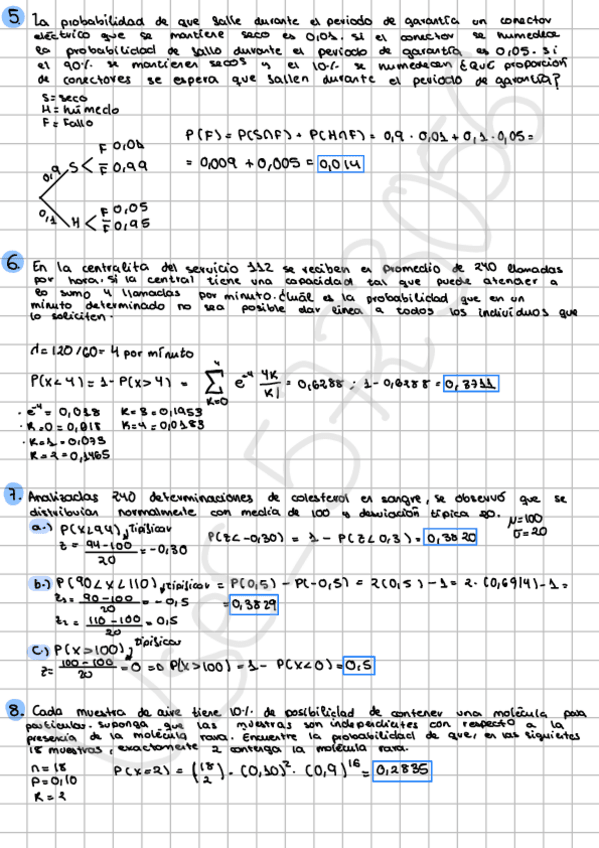 5. La probabilidad de que falle durante el periodo de garantía un conector
eléctrico que se mantiene seco es 0,01. si el conector se humedece
la probabilidad de fallo durante el periodo de garantía es 0,05. si
el 90% se mantienen secos y el 10% se humedecen ¿Qué proporción
de conectores se espera que fallen durante el periodo de garantía?
S = seco
H = húmedo
F = Fallo
P(F) = P(S∩F) + P(H∩F) = 0,9 · 0,01 + 0,1 · 0,05 =
= 0,009 + 0,005 = 0,014
0,9 S < F 0,01
F̅ 0,99
0,1 H < F 0,05
F̅ 0,95
6. En la centralita del servicio 112 se reciben en promedio de 240 llamadas
por hora. Si la central tiene una capacidad tal que puede atender a
lo sumo 4 llamadas por minuto. ¿Cuál es la probabilidad que en un
minuto determinado no sea posible dar línea a todos los individuos que
lo soliciten.
= 120/60 = 4 por minuto
P(X<4) = 1 - P(X>4) = ∑ K=0 4 e⁻⁴ 4K/K! = 0,6288 ; 1 - 0,6288 = 0,3711
· e⁻⁴ = 0,018 K=3=0,1953
· K=0=0,018 K=4=0,0183
· K=1=0,073
K=2=0,1465
7. Analizadas 240 determinaciones de colesterol en sangre, se observó que se
distribuían normalmente con media de 100 y desviación típica 20.
μ=100
σ=20
a.) P(X<94), Tipificar
z = 94-100/20 = -0,30
P(Z<-0,30) = 1 - P(Z<0,3) = 0,3820
b.) P(90<X<110), tipificar = P(0,5) - P(-0,5) = 2(0,5) - 1 = 2 · (0,6914) - 1 =
z₁ = 90-100/20 = -0,5
= 0,3829
z₂ = 110-100/20 = 0,5
c) P(X>100), tipificar
z = 100-100/20 = 0 => P(X>100) = 1 - P(X<0) = 0,5
8. Cada muestra de aire tiene 10% de posibilidad de contener una molécula
particulas. suponga que las muestras son independientes con respecto a la
presencia de la molécula rara. Encuentre la probabilidad de que, en las siguientes
18 muestras, exactamente 2 contenga la molécula rara.
n = 18
p = 0,10
K = 2
P(X=2) = (18 2) · (0,10)² · (0,9)¹⁶ = 0,2835